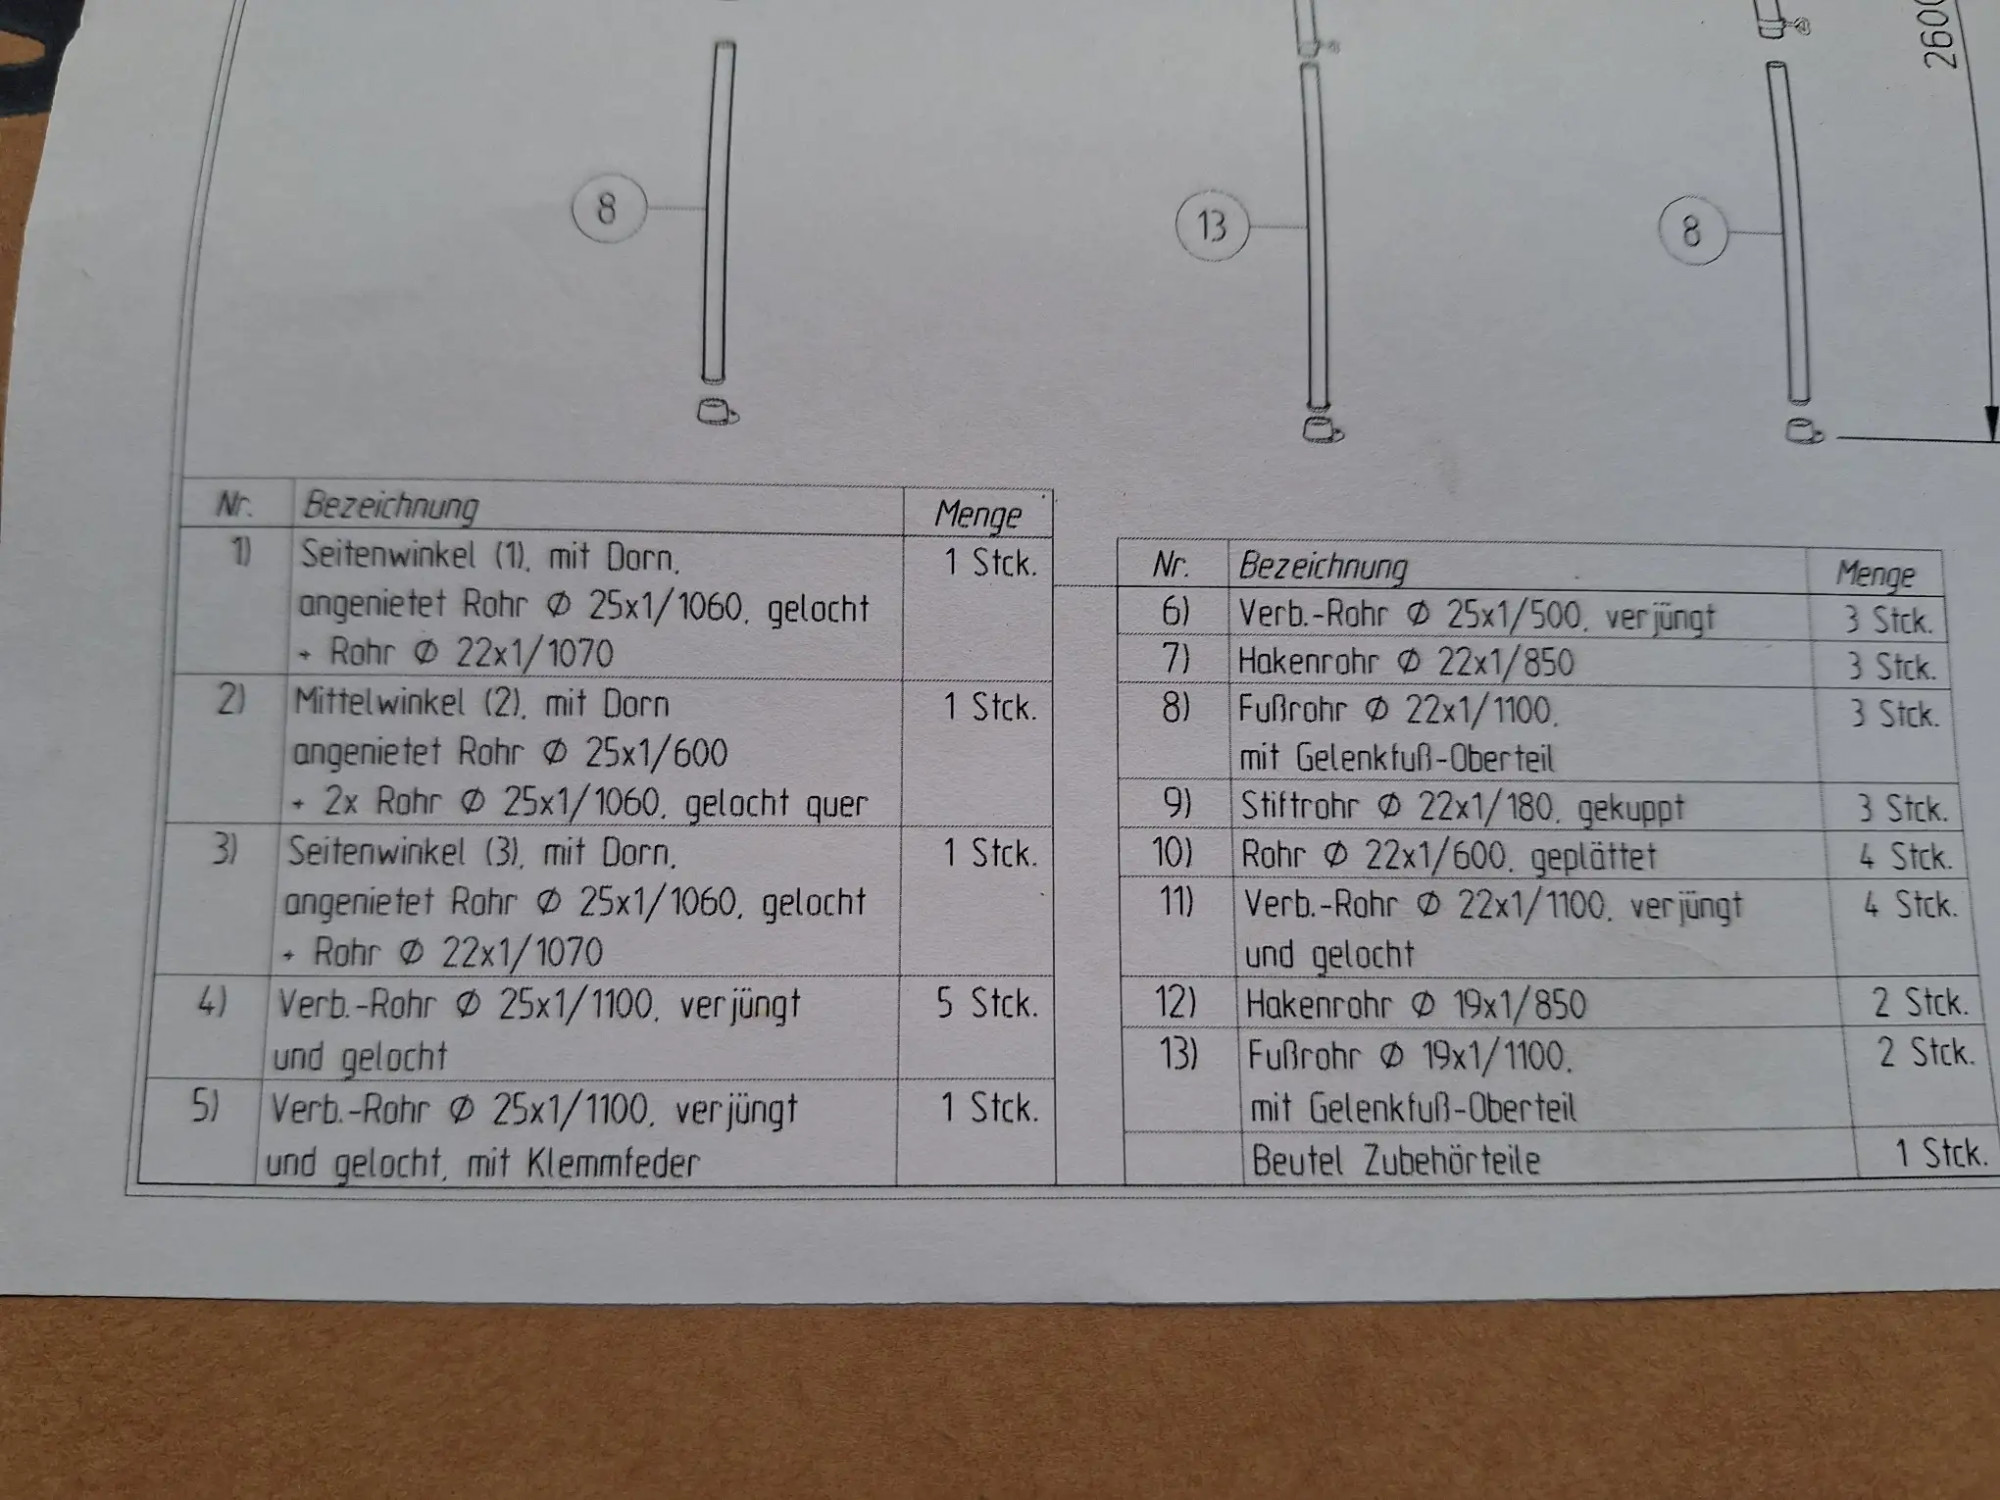 2600
8
13
8
Nr. Bezeichnung Menge
1) Seitenwinkel (1), mit Dorn, 1 Stck.
angenietet Rohr Ø 25x1/1060, gelocht
+ Rohr Ø 22x1/1070
2) Mittelwinkel (2), mit Dorn 1 Stck.
angenietet Rohr Ø 25x1/600
+ 2x Rohr Ø 25x1/1060, gelocht quer
3) Seitenwinkel (3), mit Dorn, 1 Stck.
angenietet Rohr Ø 25x1/1060, gelocht
+ Rohr Ø 22x1/1070
4) Verb.-Rohr Ø 25x1/1100, verjüngt 5 Stck.
und gelocht
5) Verb.-Rohr Ø 25x1/1100, verjüngt 1 Stck.
und gelocht, mit Klemmfeder
Nr. Bezeichnung Menge
6) Verb.-Rohr Ø 25x1/500, verjüngt 3 Stck.
7) Hakenrohr Ø 22x1/850 3 Stck.
8) Fußrohr Ø 22x1/1100, 3 Stck.
mit Gelenkfuß-Oberteil
9) Stiftrohr Ø 22x1/180, gekuppt 3 Stck.
10) Rohr Ø 22x1/600, geplättet 4 Stck.
11) Verb.-Rohr Ø 22x1/1100, verjüngt 4 Stck.
und gelocht
12) Hakenrohr Ø 19x1/850 2 Stck.
13) Fußrohr Ø 19x1/1100, 2 Stck.
mit Gelenkfuß-Oberteil
Beutel Zubehörteile 1 Stck.